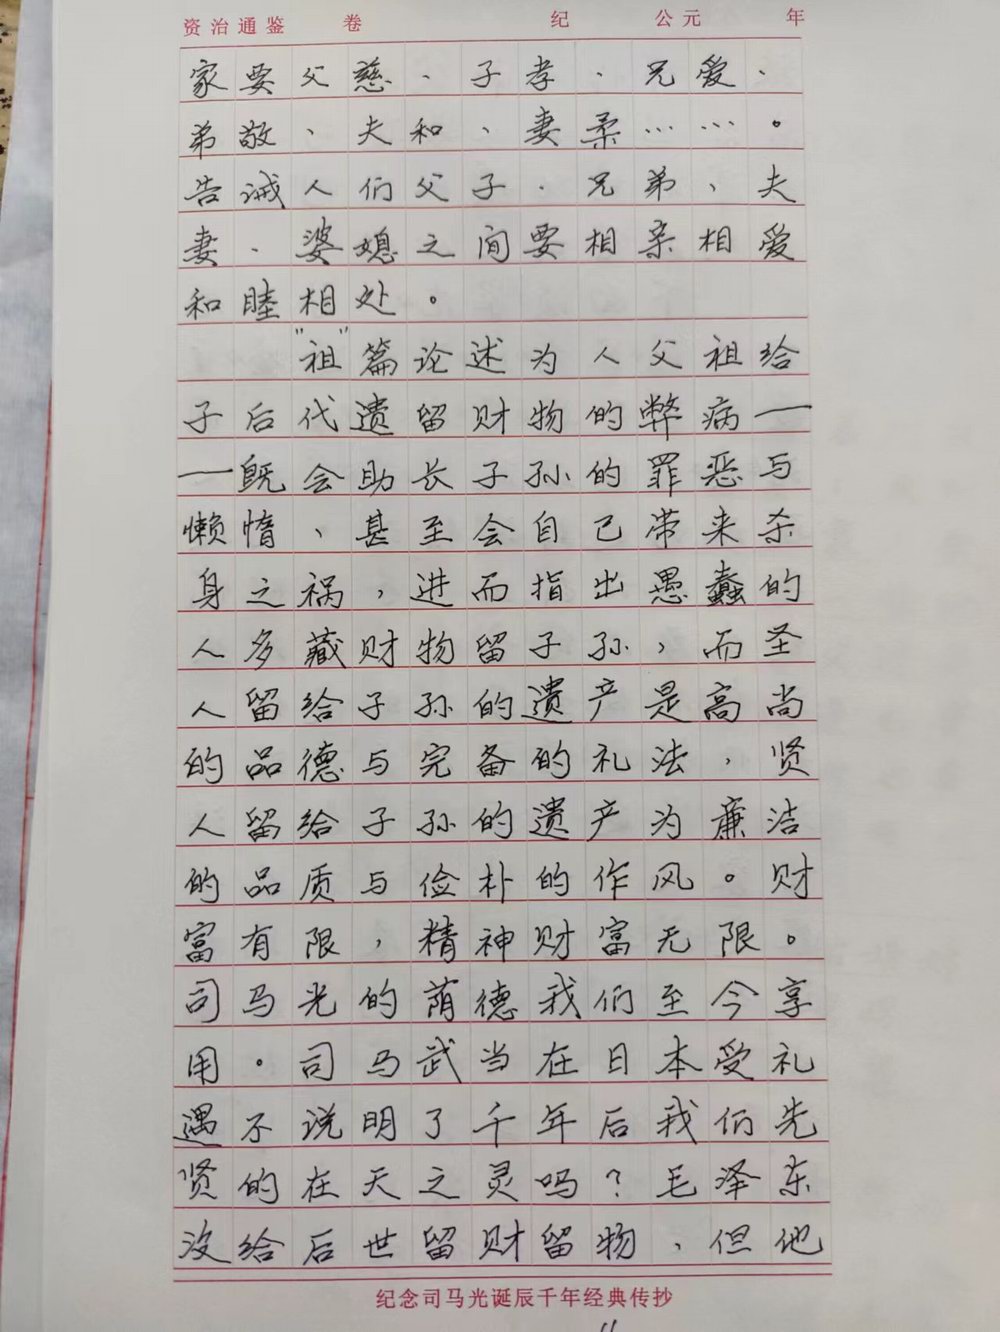 资治通鉴 卷 纪 公元 年
家要父慈、子孝、兄爱、
弟敬、夫和、妻柔……。
告诫人们父子、兄弟、夫
妻、婆媳之间要相亲相爱
和睦相处。
"祖"篇论述为人父祖给
子后代遗留财物的弊病—
—既会助长子孙的罪恶与
懒惰、甚至会自己带来杀
身之祸，进而指出愚蠢的
人多藏财物留子孙，而圣
人留给子孙的遗产是高尚
的品德与完备的礼法，贤
人留给子孙的遗产为廉洁
的品质与俭朴的作风。财
富有限，精神财富无限。
司马光的荫德我们至今享
用。司马武当在日本受礼
遇不说明了千年后我们先
贤的在天之灵吗？毛泽东
没给后世留财留物，但他
纪念司马光诞辰千年经典传抄
11